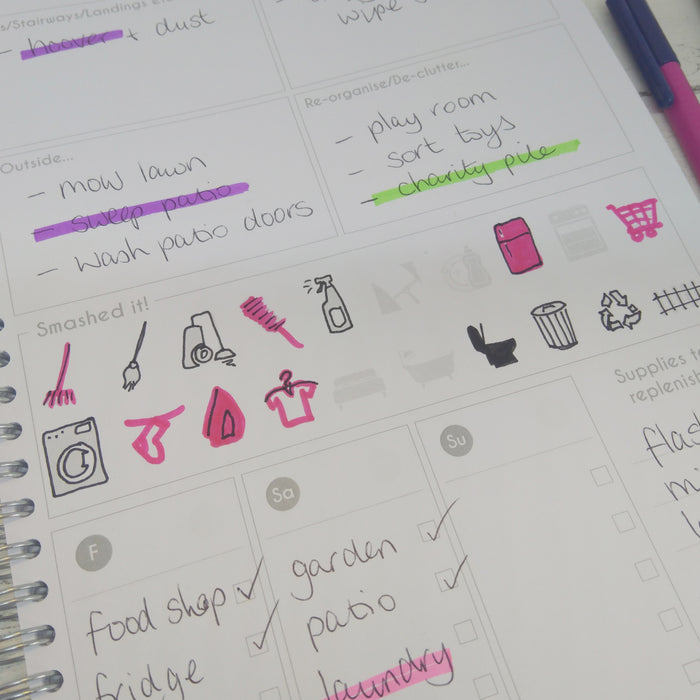 s/Stairways/Landings etc
- hoover + dust
wipe
Outside...
- mow lawn
- sweep patio
- wash patio doors
Re-organise/De-clutter...
- play room
- sort toys
- charity pile
Smashed it!
Supplies to
replenish
F
food shop
fridge
Sa
garden
patio
laundry
Su